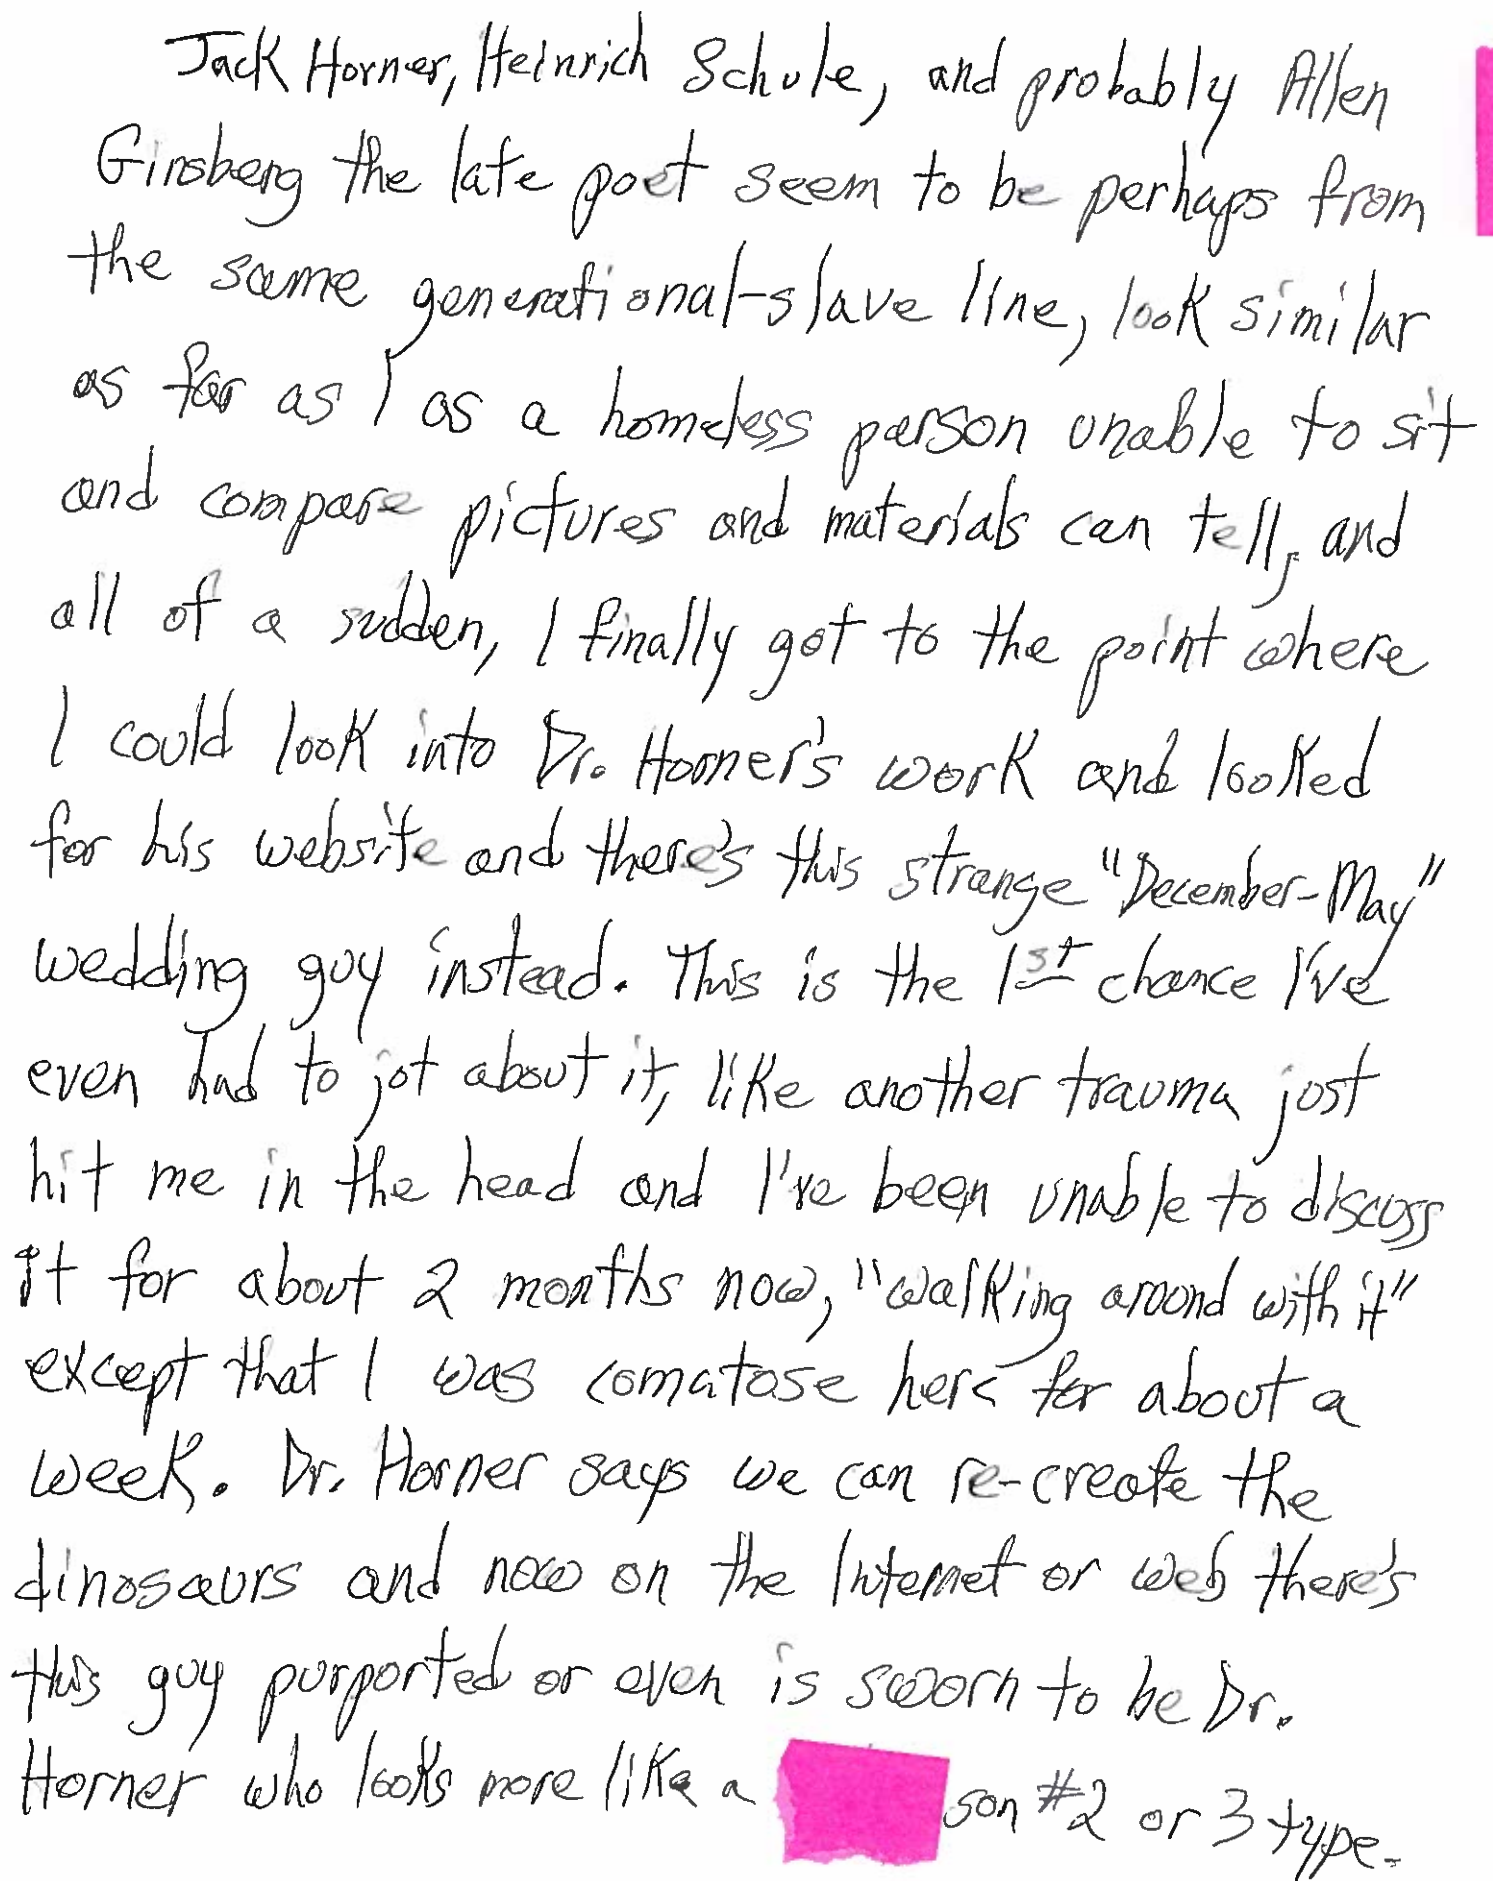 Jack Horner, Heinrich Schule, and probably Allen
Ginsberg the late poet seem to be perhaps from
the same generational-slave line, look similar
as far as I as a homeless person unable to sit
and compare pictures and materials can tell, and
all of a sudden, I finally got to the point where
I could look into Dr. Horner's work and looked
for his website and there's this strange "December-May"
wedding guy instead. This is the 1st chance I've
even had to jot about it, like another trauma just
hit me in the head and I've been unable to discuss
it for about 2 months now, "walking around with it"
except that I was comatose here for about a
week. Dr. Horner says we can re-create the
dinosaurs and now on the Internet or web there's
this guy purported or even is sworn to be Dr.
Horner who looks more like a son #2 or 3 type.